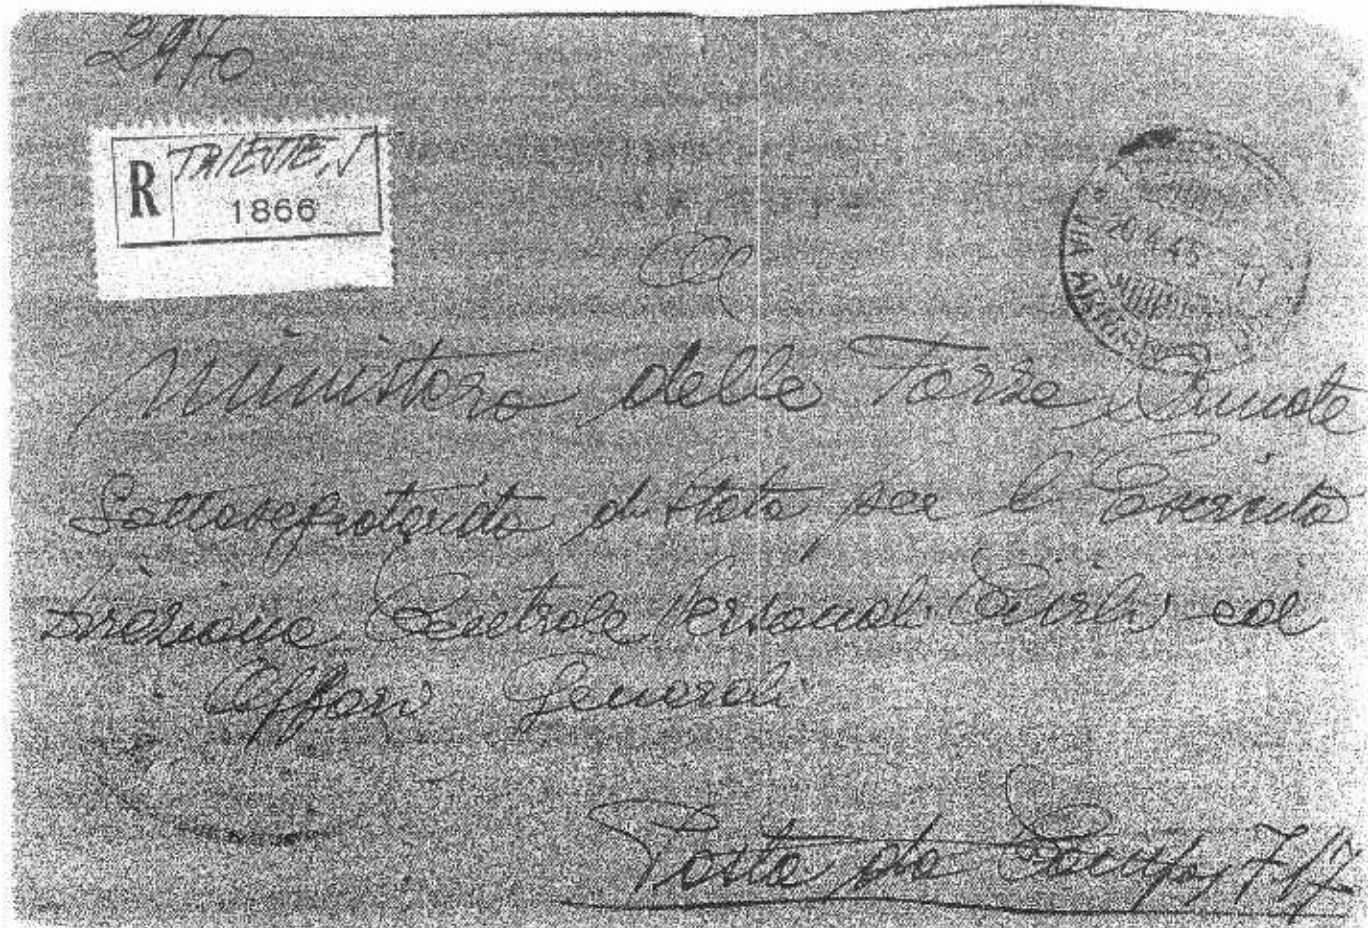 2970
R TRIESTE N
1866
VIA
20.4.45
Al
Ministero delle Forze Armate
Sottosegretariato di Stato per l'Esercito
Direzione Centrale Personali Civili ed
Affari Generali
Posta da Campo 717